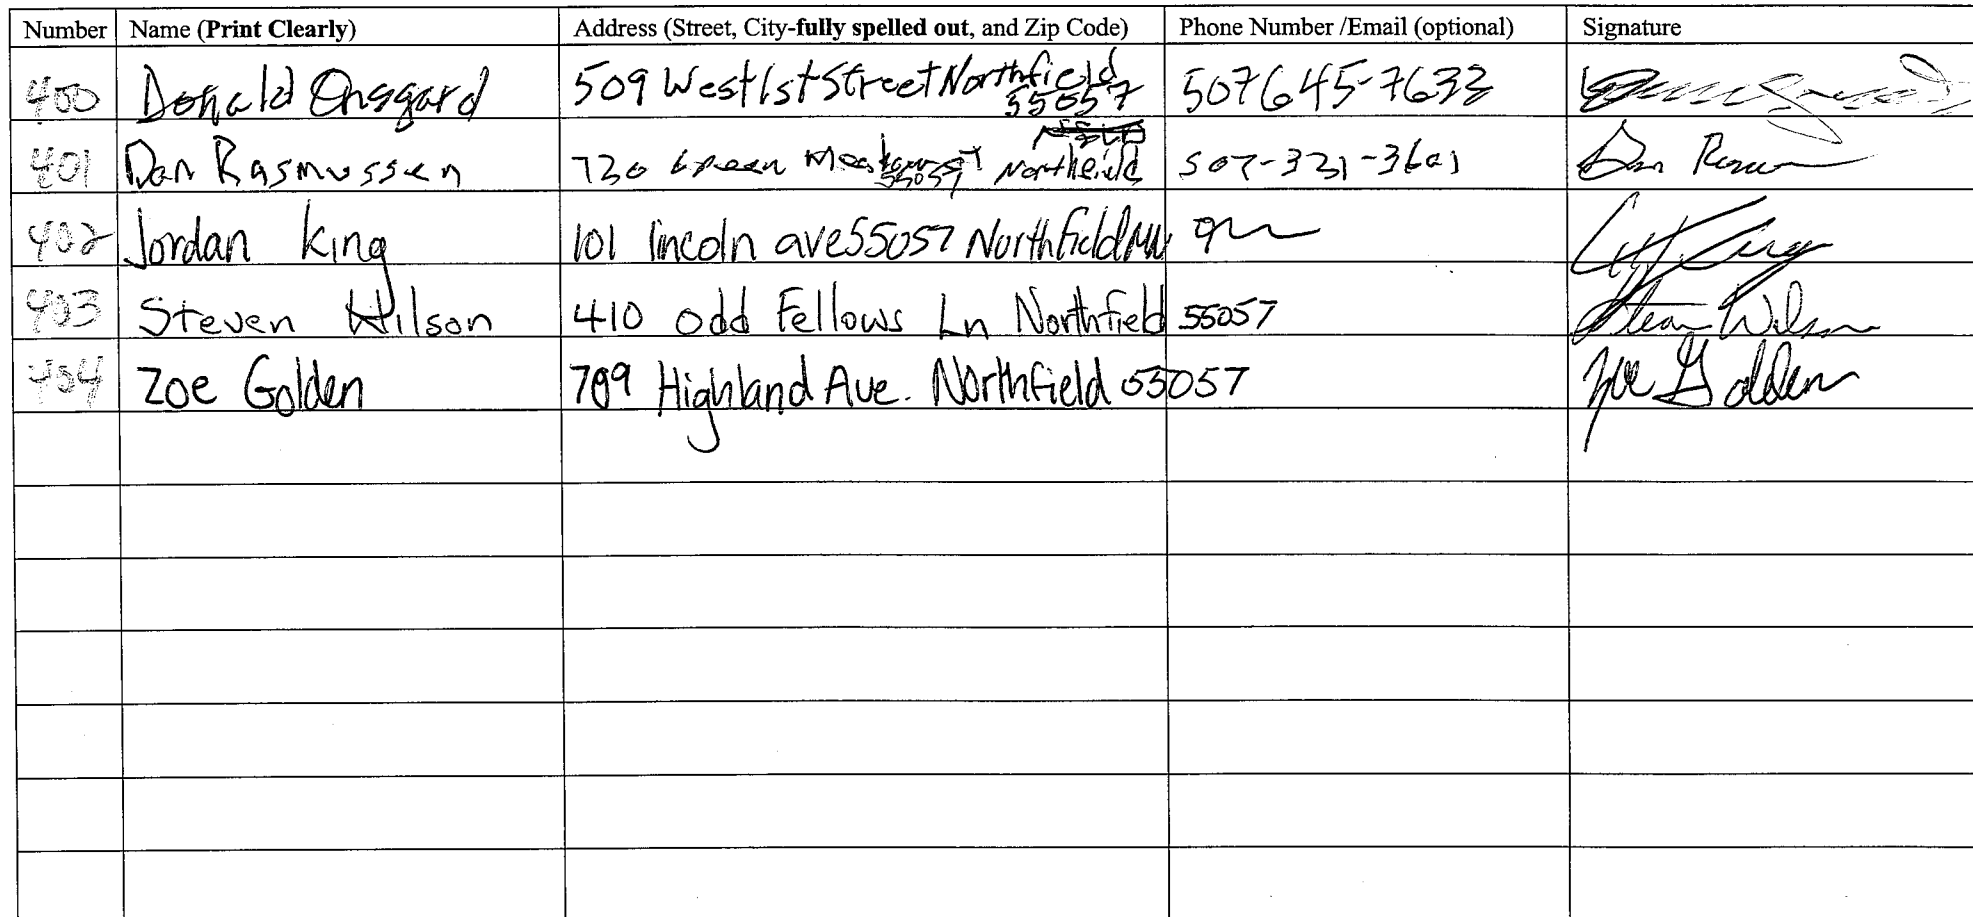 Number Name (Print Clearly) Address (Street, City-fully spelled out, and Zip Code) Phone Number /Email (optional) Signature
400 Donald Onsgard 509 West 1st Street Northfield 507645-7633
55057
401 Dan Rasmussen 720 Green Meadows Northfeild 507-321-3601 Dan
55057
402 Jordan King 101 lincoln ave 55057 Northfield MN
403 Steven Wilson 410 Odd Fellows Ln Northfield 55057 Steven Wilson
404 Zoe Golden 709 Highland Ave. Northfield 55057 Zoe Golden